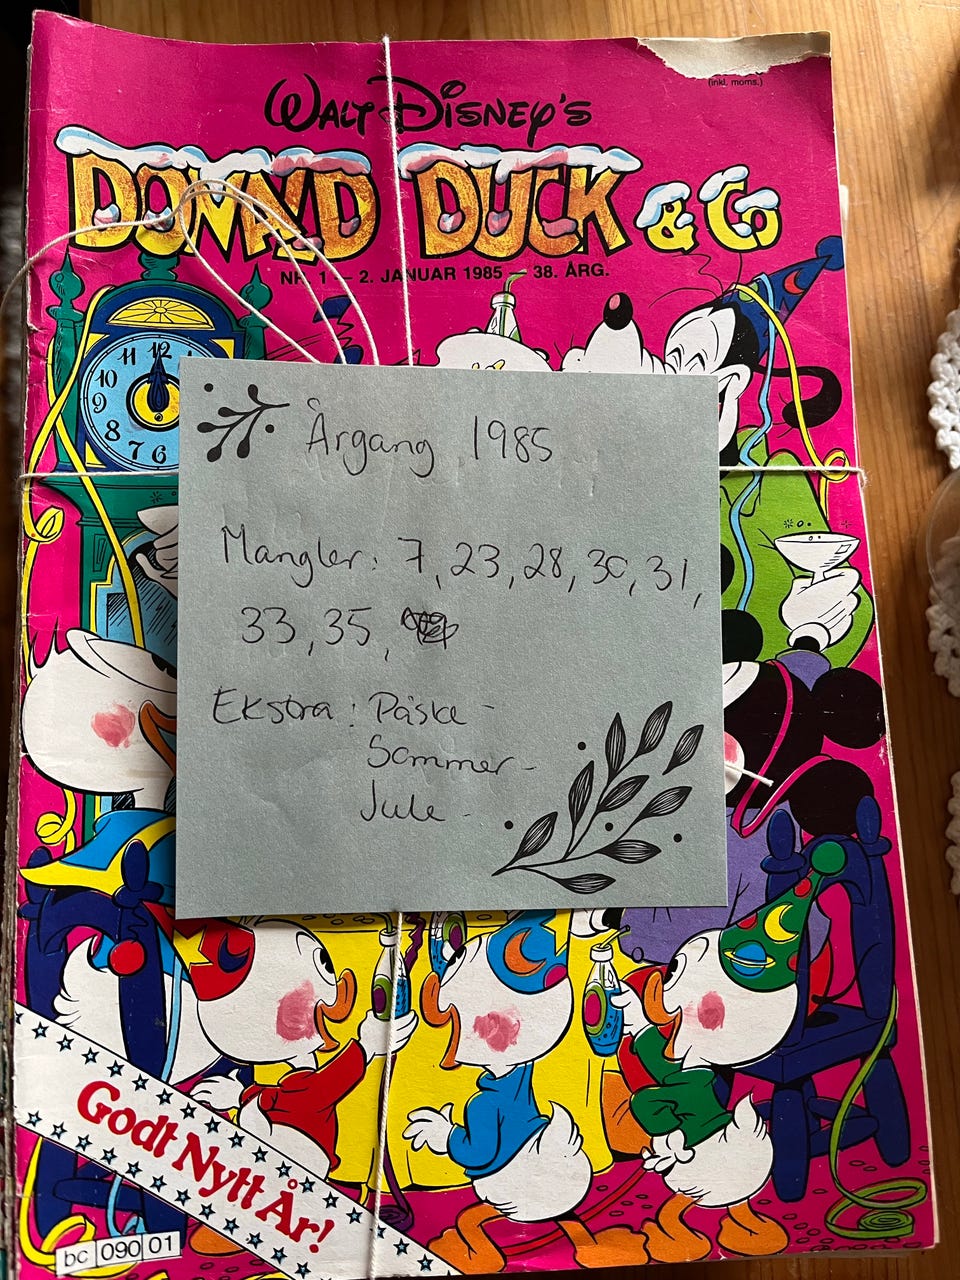 (inkl. moms.)
WALT DISNEY'S
DONALD DUCK & Co
NR. 1 — 2. JANUAR 1985 — 38. ÅRG.
11 12
10
9
8
7 6
Årgang 1985
Mangler: 7, 23, 28, 30, 31,
33, 35,
Ekstra: Påske -
Sommer -
Jule -
Godt Nytt År!
bc 090 01